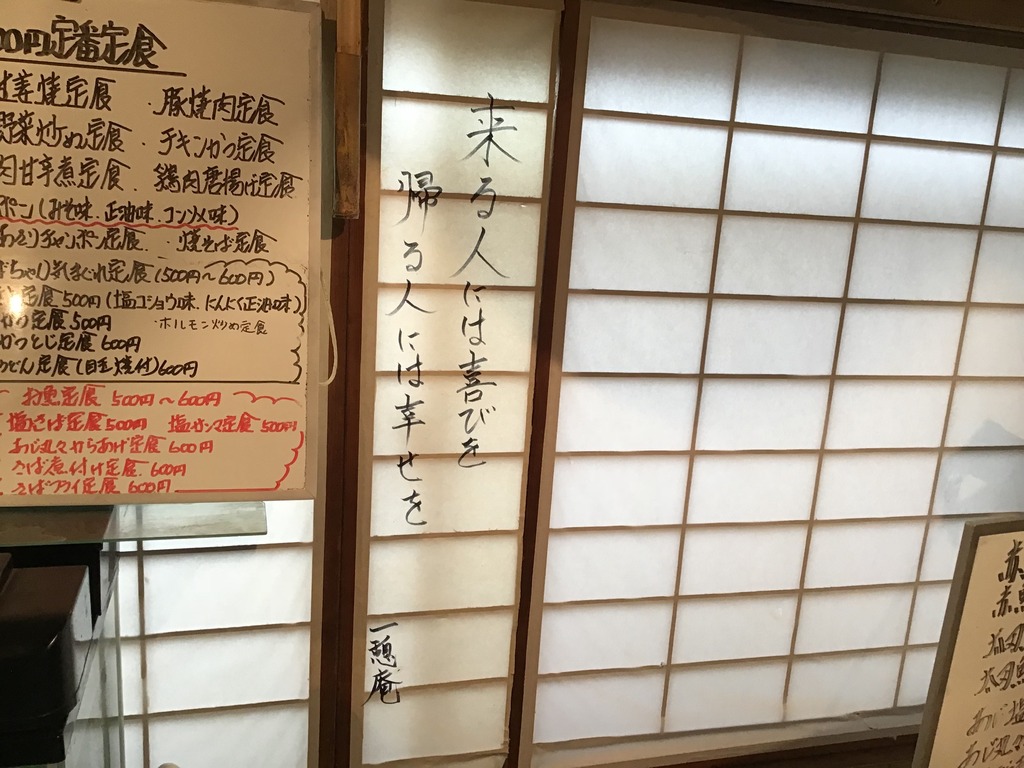 00円定番定食
生姜焼定食 ・豚焼肉定食
野菜炒め定食 ・チキンかつ定食
肉甘辛煮定食 ・鶏肉唐揚げ定食
ポン(みそ味、正油味、コンソメ味)
チャンポン定食 ・焼そば定食
気まぐれ定食(500円〜600円)
定食500円(塩コショウ味、にんにく正油味)
かつ定食500円 ・ホルモン炒め定食
かつとじ定食600円
うどん定食(目玉焼付)600円
お魚定食 500円〜600円
塩さば定食500円 塩サンマ定食500円
あじ丸々からあげ定食600円
さば煮付け定食 600円
さばフライ定食 600円
来る人には喜びを
帰る人には幸せを
一憩庵
赤
赤魚